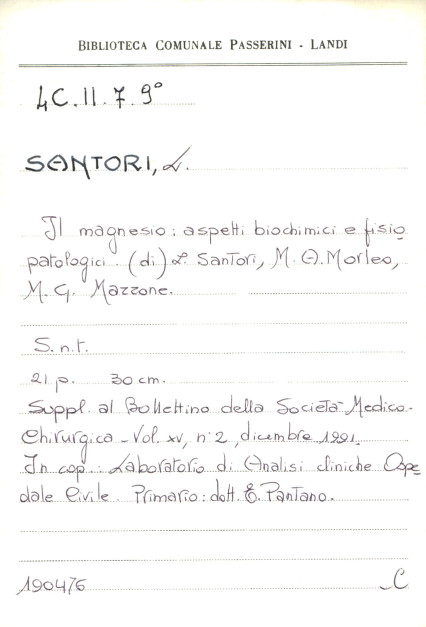 BIBLIOTECA COMUNALE PASSERINI - LANDI
4C.II.7.9°
SANTORI, L.
Il magnesio: aspetti biochimici e fisio
patologici. (di) L. Santori, M. A. Morleo,
M. G. Mazzone.
S.n.t.
21 p. 30 cm.
Suppl. al Bollettino della Società Medico-
Chirurgica - Vol. XV, n° 2, dicembre 1991.
In cop.: Laboratorio di Analisi cliniche Ospe
dale Civile. Primario: dott. E. Pantano.
190476 C